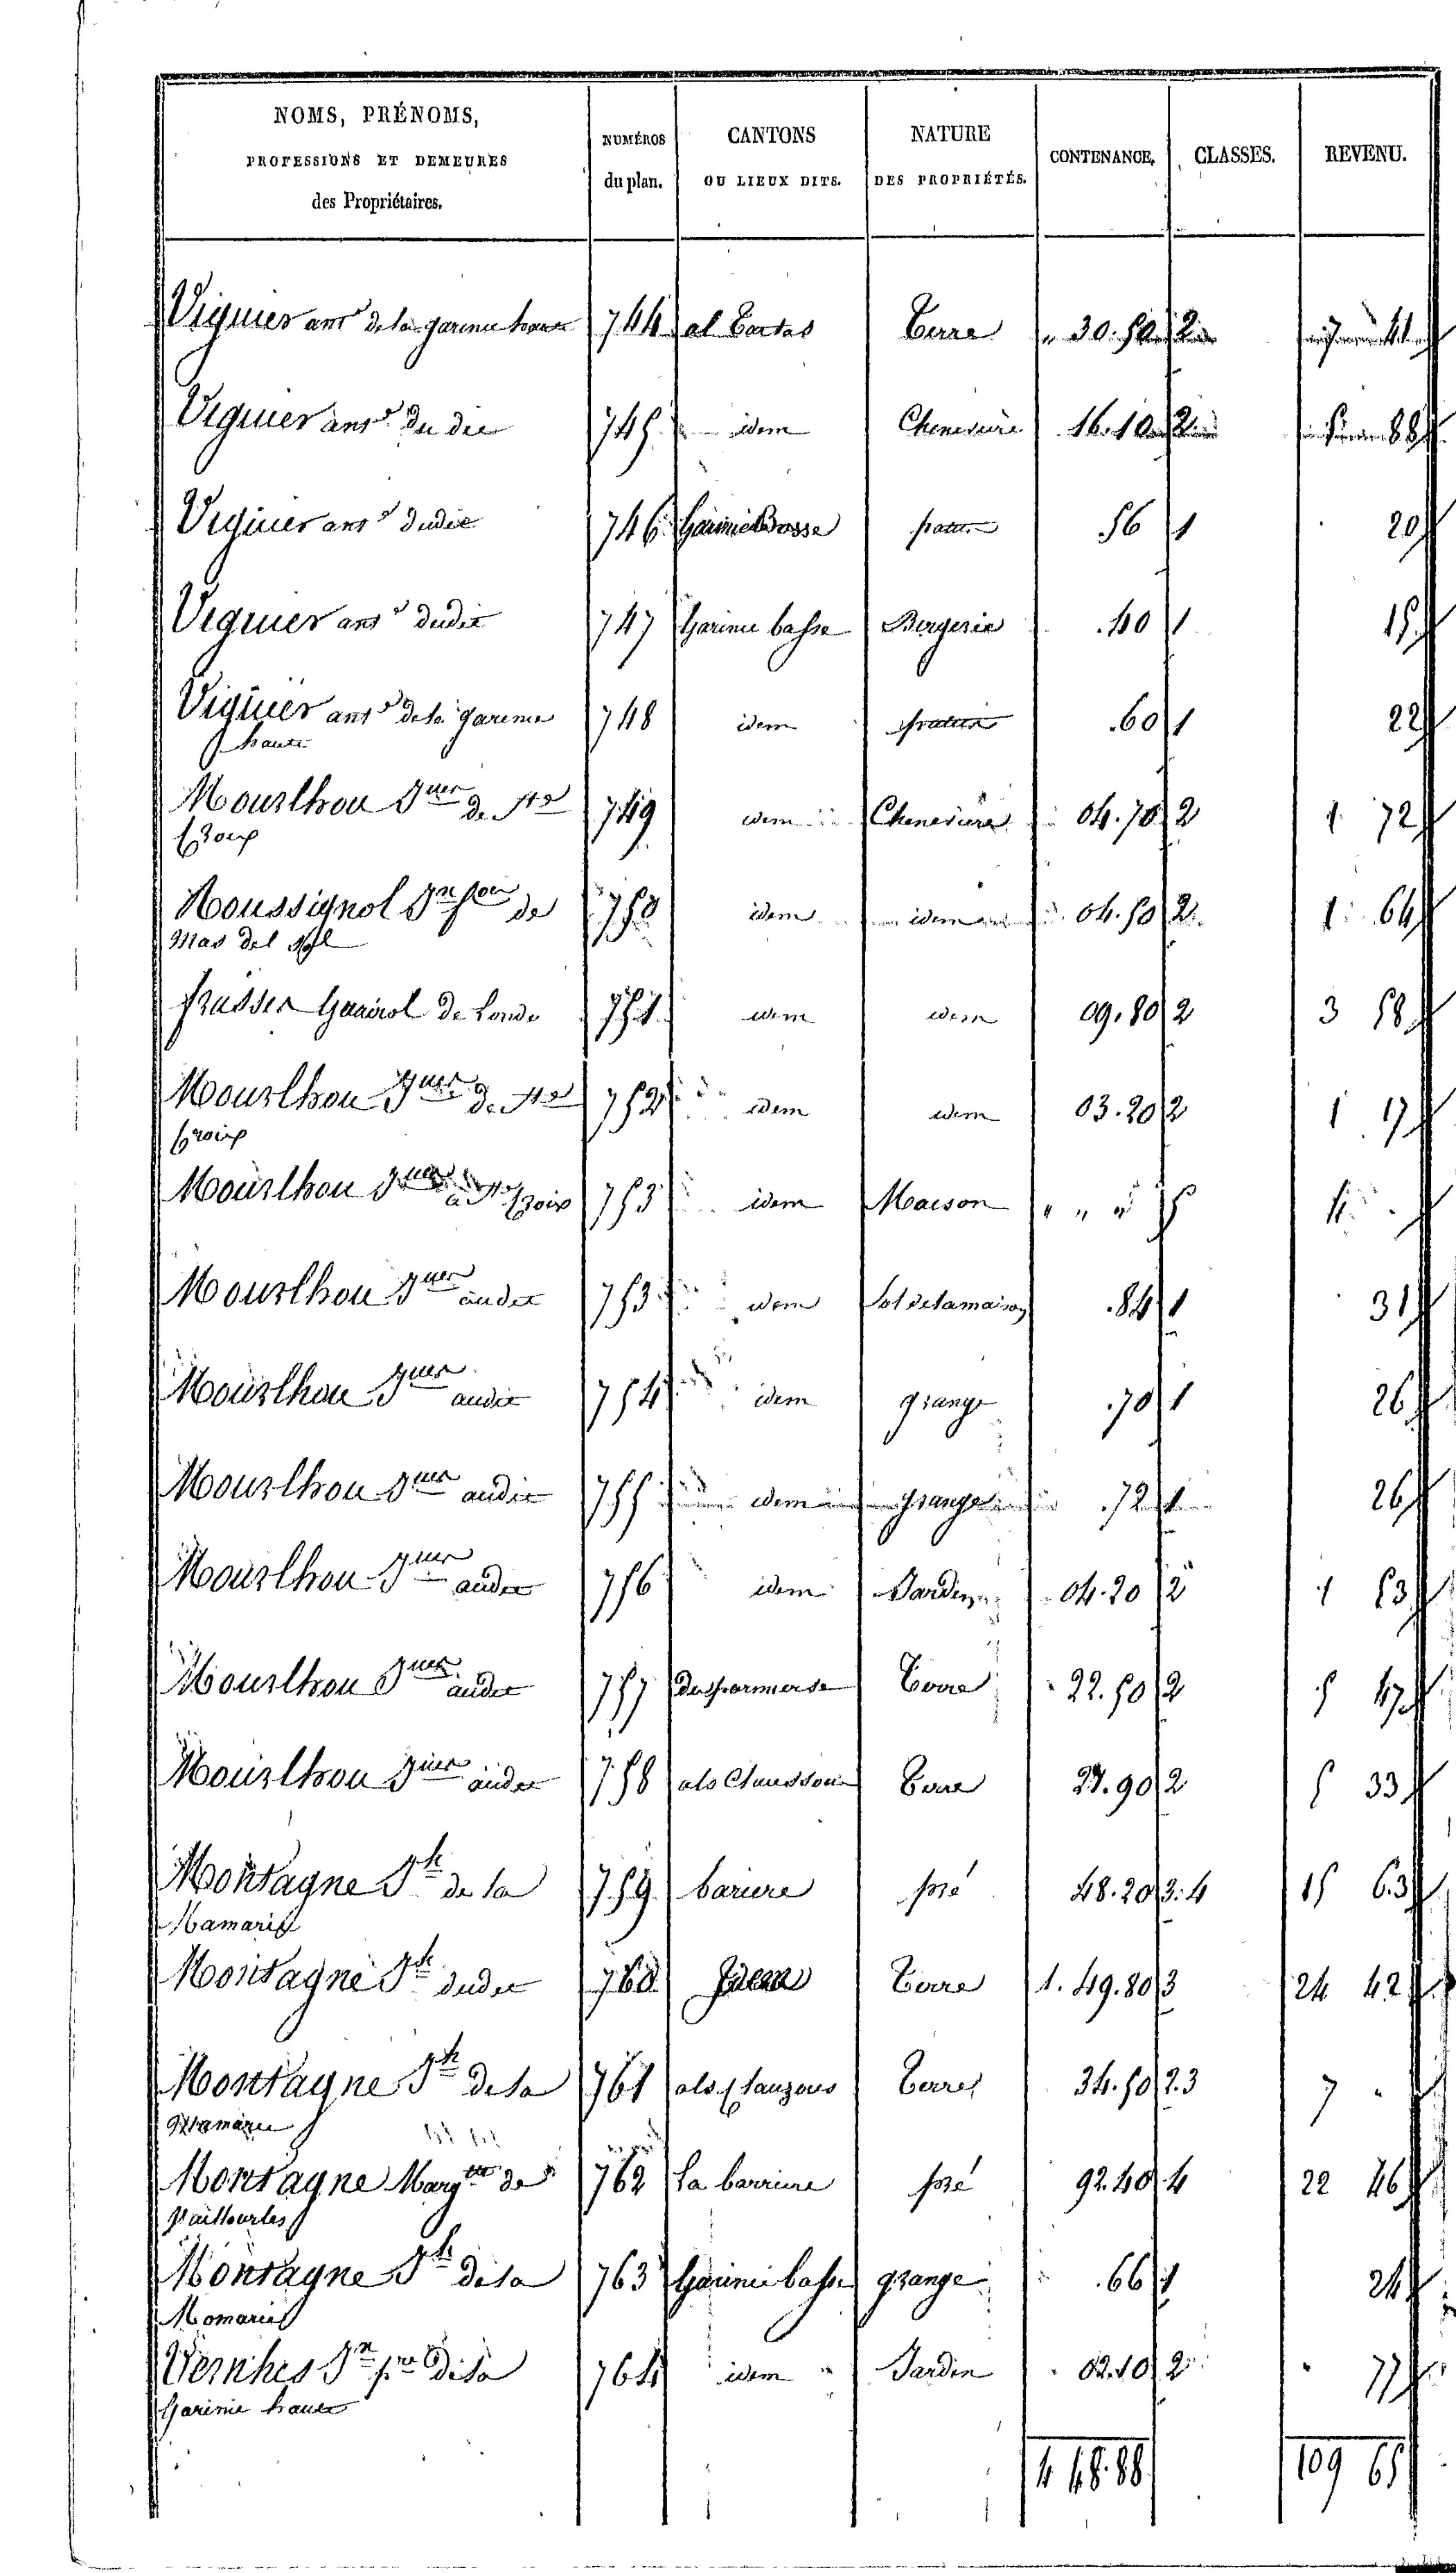 NOMS, PRÉNOMS,
PROFESSIONS ET DEMEURES
des Propriétaires.
NUMÉROS
du plan.
CANTONS
OU LIEUX DITS.
NATURE
DES PROPRIÉTÉS.
CONTENANCE.
CLASSES.
REVENU.
Viguier ant de la garenie haute 744 al Cartas Terre " 30.50 2 7 41
Viguier ant du dit 745 idem Cheneviere 16.10 2 5 88
Viguier ant dudit 746 Garenie Basse patu .56 1 20
Viguier ant dudit 747 Garinie basse Bergerie .40 1 15
Viguier ant de la garenie 748 idem patu .60 1 22
haute
Mourlhou Jner de Ste 749 idem Cheneviere 04.70 2 1 72
Croix
Roussignol Jn de 750 idem idem 04.50 2 1 64
Mas del
de 751 idem idem 09.80 2 3 58
Mourlhou Jner de Ste 752 idem idem 03.20 2 1 17
Croix
Mourlhou Jner a Ste Croix 753 idem Maison " " "
Mourlhou Jner audit 753 idem Sol de la maison .84 1 31
Mourlhou Jner audit 754 idem grange .70 1 26
Mourlhou Jner audit 755 idem grange .72 1 26
Mourlhou Jner audit 756 idem Jardin 04.20 2 1 53
Mourlhou Jner audit 757 Terre 22.50 2 5 47
Mourlhou Jner audit 758 als Claussous Terre 21.90 2 5 33
Montagne Jh de la 759 bariere pré 48.20 3.4 15 63
Mamarie
Montagne Jh dudit 760 Idem Terre 1.49.80 3 24 42
Montagne Jh de la 761 als Clauzous Terre 34.50 2.3 7 "
Mamarie
Montagne Margtte de 762 La barriere pré 92.40 4 22 46
Vailhourles
Montagne Jh de la 763 Garinie basse grange .66 1 24
Momarie
Vernhes Jn pre de la 764 idem Jardin 02.10 2 77
Garinie haute
4 48.88 109 65